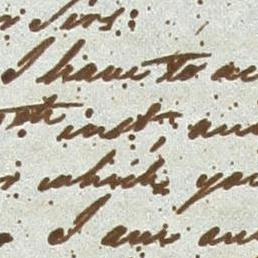 Sirs:
I have to ac
inst. and
which you
I am